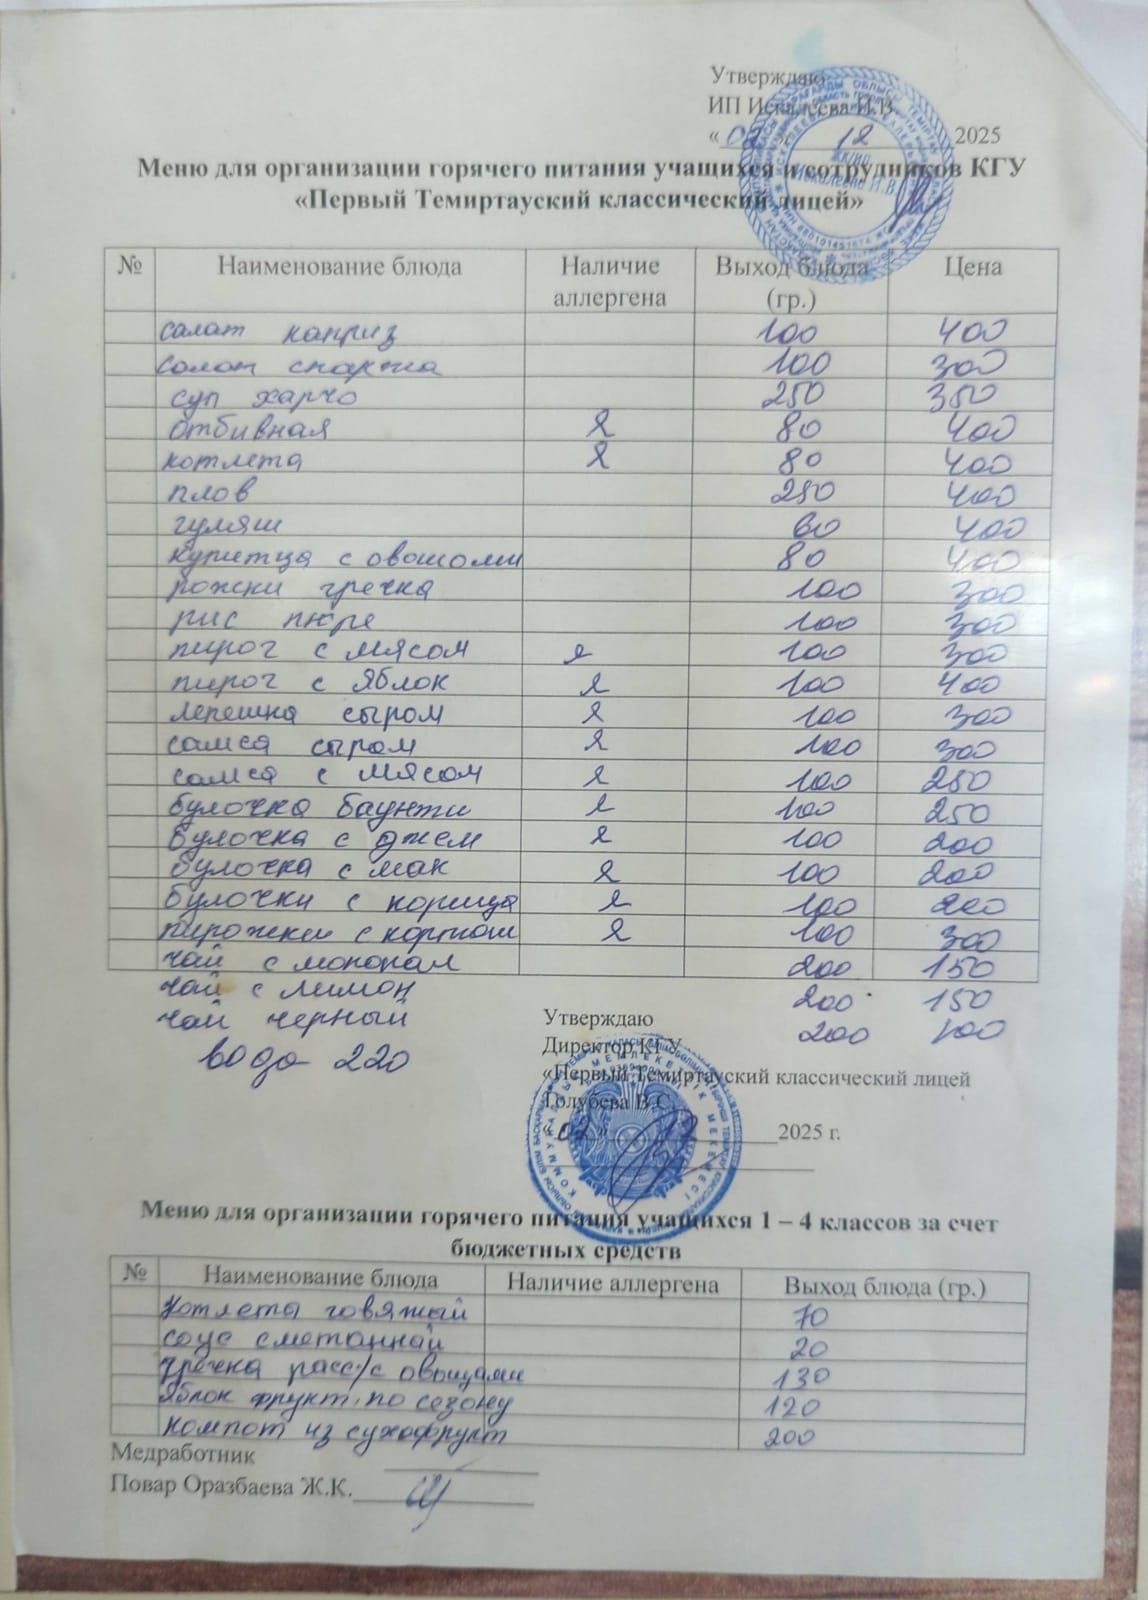 Утверждаю
ИП Искалеева И.В.
«02» 12 2025
Меню для организации горячего питания учащихся и сотрудников КГУ
«Первый Темиртауский классический лицей»
№ Наименование блюда Наличие аллергена Выход блюда (гр.) Цена
салат каприз 100 400
салат спаржа 100 300
суп харчо 250 350
отбивная Я 80 400
котлета Я 80 400
плов 250 400
гуляш 60 400
куритца с овошоми 80 400
рожки гречка 100 300
рис пюре 100 300
пирог с мясом я 100 300
пирог с яблок я 100 400
лепешка сыром я 100 300
самса сыром я 100 300
самса с мясом я 100 250
булочка баунти я 100 250
булочка с джем я 100 200
булочка с мак я 100 200
булочки с корица я 100 200
пирожки с картош я 100 300
чай с молокам 200 150
чай с лимон 200 150
чай черный 200 100
вода 220
Утверждаю
Директор КГУ
«Первый Темиртауский классический лицей
Голубева В.С.
«02» 2025 г.
Меню для организации горячего питания учащихся 1 – 4 классов за счет
бюджетных средств
№ Наименование блюда Наличие аллергена Выход блюда (гр.)
котлеты говяжый 70
соус сметаннай 20
гречка расс/с овощами 130
яблок фрукт по сезону 120
компот из сухофрукт 200
Медработник
Повар Оразбаева Ж.К.